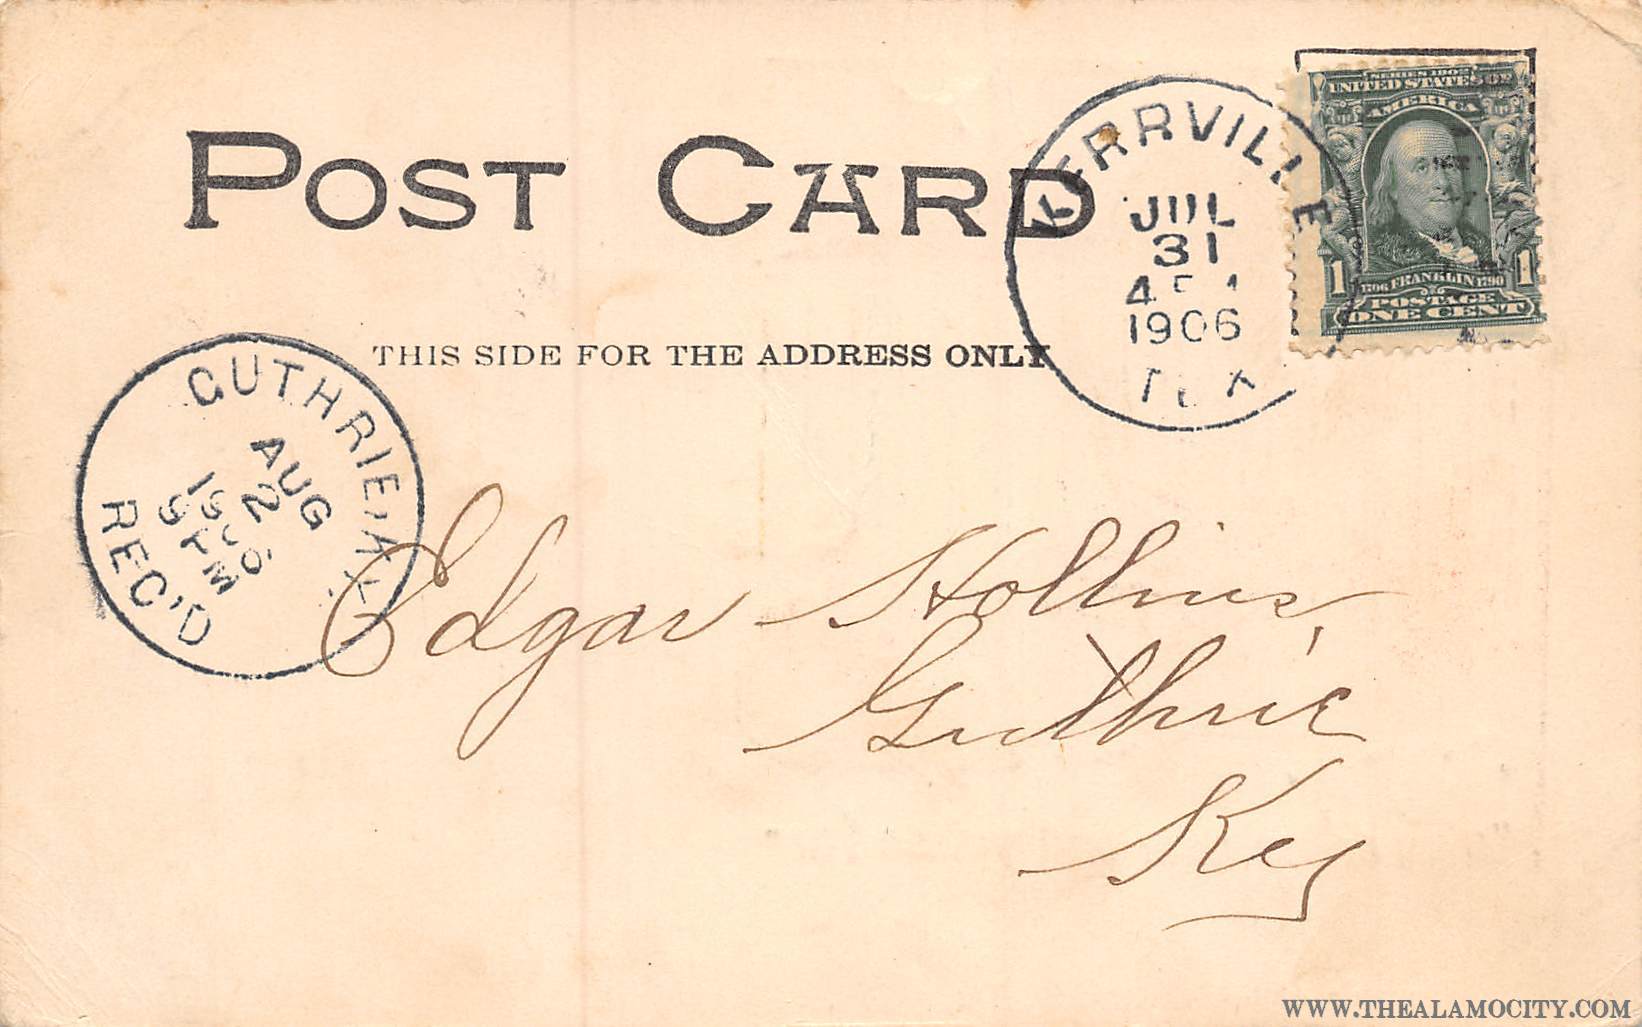 POST CARD
THIS SIDE FOR THE ADDRESS ONLY
KERRVILLE
JUL
31
1906
TEX
SERIES 1902
UNITED STATES OF
AMERICA
1 1706 FRANKLIN 1790 1
POSTAGE
ONE CENT
GUTHRIE, KY.
AUG
2
1906
9 PM
REC'D
Edgar Hollins
Guthrie
Key
WWW.THEALAMOCITY.COM